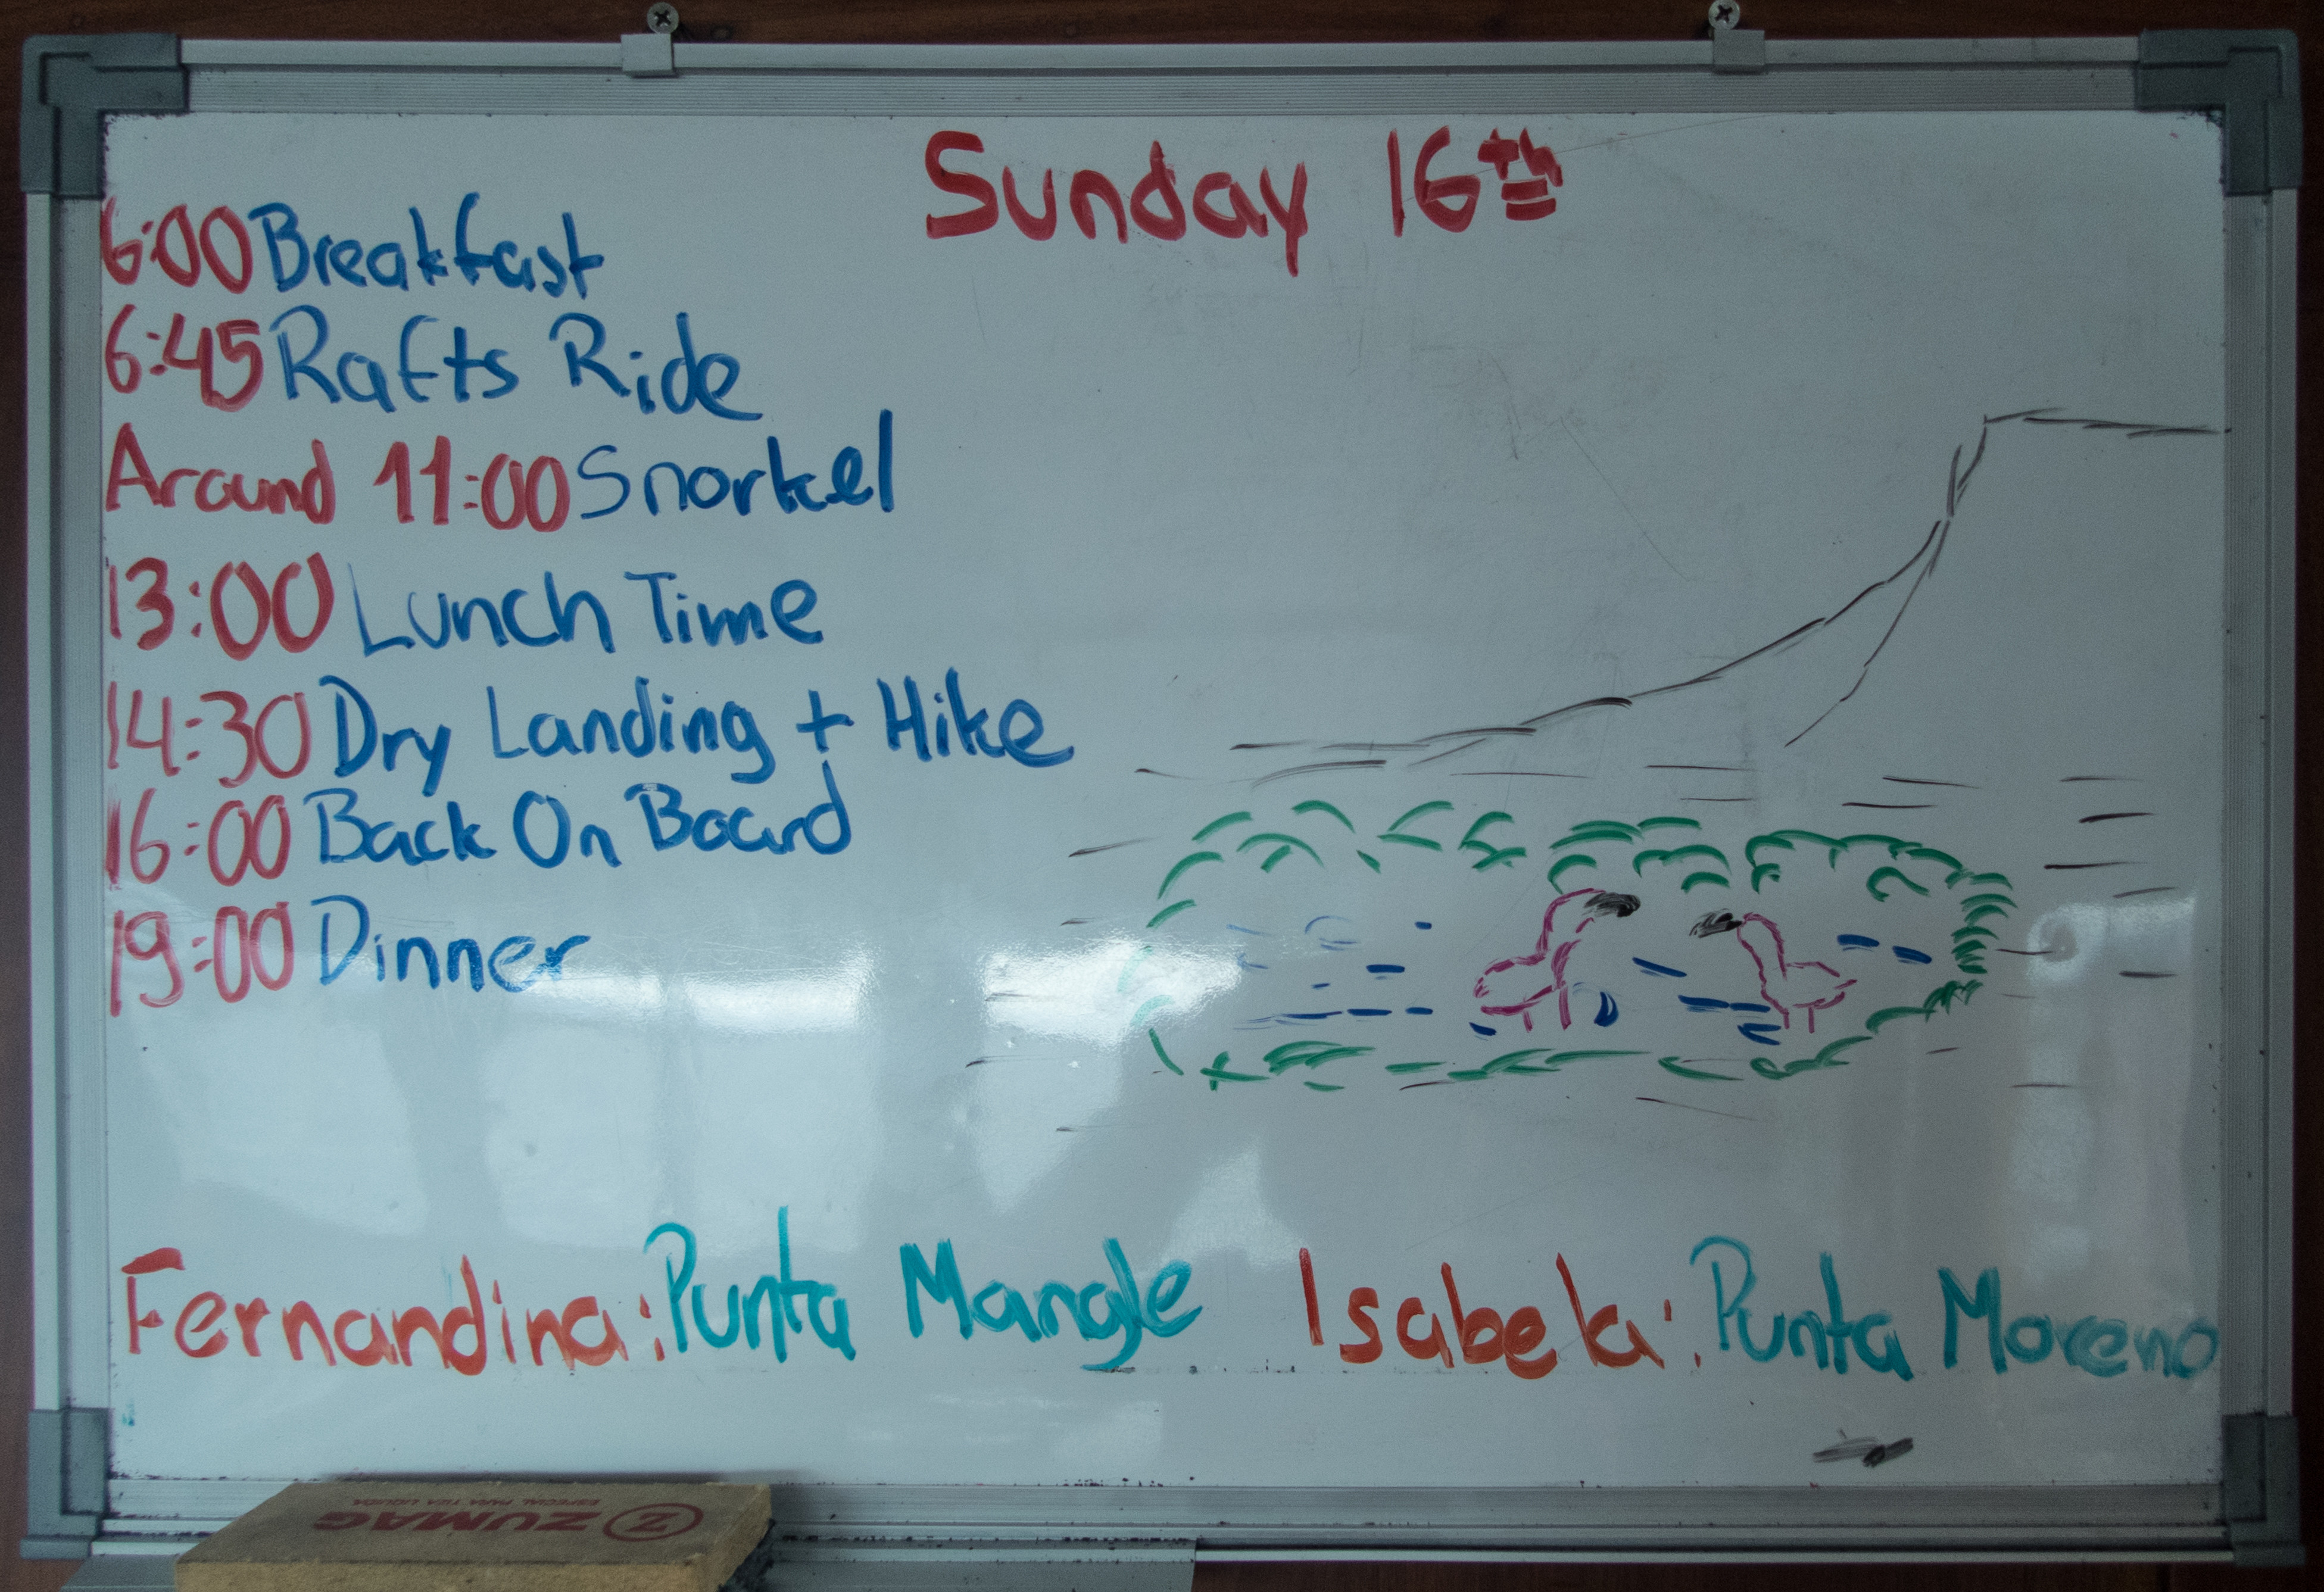 Sunday 16th
6:00 Breakfast
6:45 Rafts Ride
Around 11:00 Snorkel
13:00 Lunch Time
14:30 Dry Landing + Hike
16:00 Back On Board
19:00 Dinner
Fernandina: Punta Mangle Isabela: Punta Moreno
Z ZUMAG
ESPECIAL PARA TIZA LIQUIDA